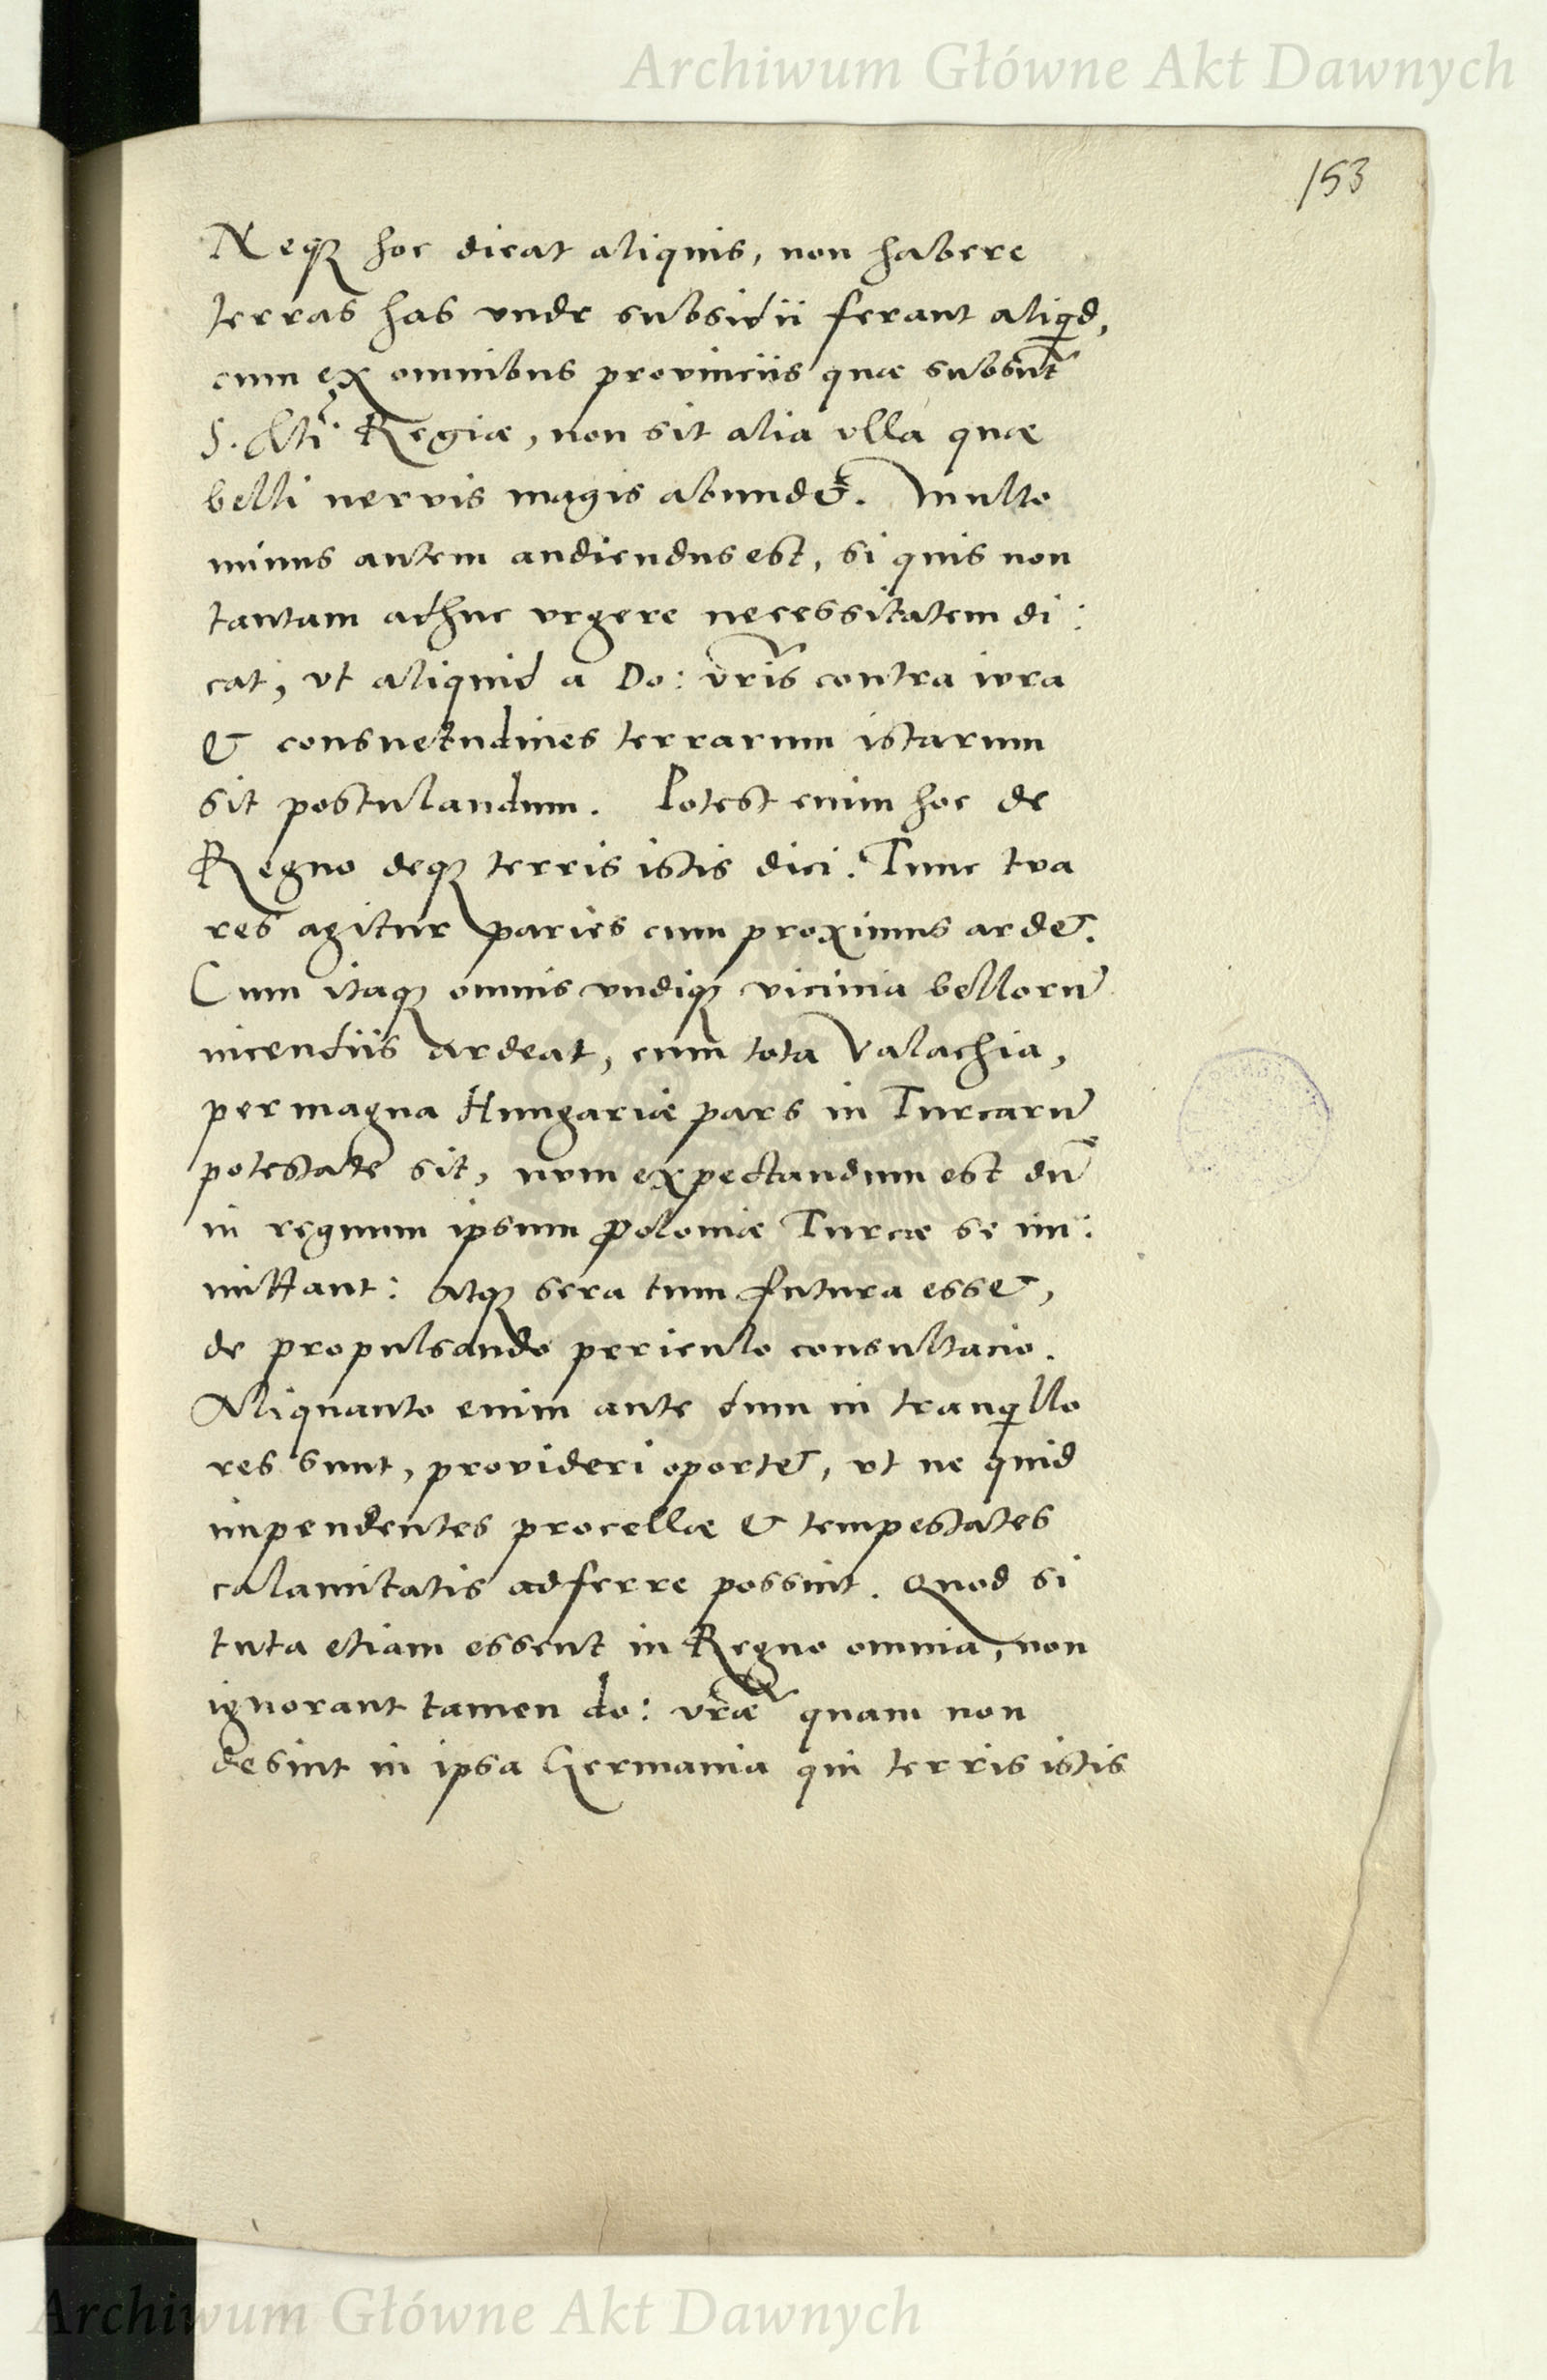 Archiwum Główne Akt Dawnych
153
Neq3 hoc dicat aliquis, non habere
terras has unde subsidii ferant aliqd,
cum ex omnibus provinciis quæ subsūt
S. Mti Regiæ, non sit alia ulla quæ
belli nervis magis abundet. Multo
minus autem audiendus est, si quis non
tantam adhuc urgere necessitatem di:
cat, ut aliquid a Do: vr̄is contra iura
& consuetudines terrarum istarum
sit postulandum. Potest enim hoc de
Regno deq3 terris istis dici. Tunc tua
res agitur paries cum proximus ardet.
Cum itaq3 omnis undiq3 vicinia bellorū
incendiis ardeat, cum tota Valachia,
per magna Hungariæ pars in Turcarū
potestate sit, num expectandum est dū
in regnum ipsum Poloniæ Turcæ se im:
mittant: Atq3 sera tum futura esset,
de propulsando periculo consultacio.
Aliquanto enim ante dum in tranqllo
res sunt, provideri oportet, ut ne quid
impendentes procellæ & tempestates
calamitatis adferre possint. Quod si
tuta etiam essent in Regno omnia, non
ignorant tamen do: vr̄æ quam non
desint in ipsa Germania qui terris istis
Archiwum Główne Akt Dawnych